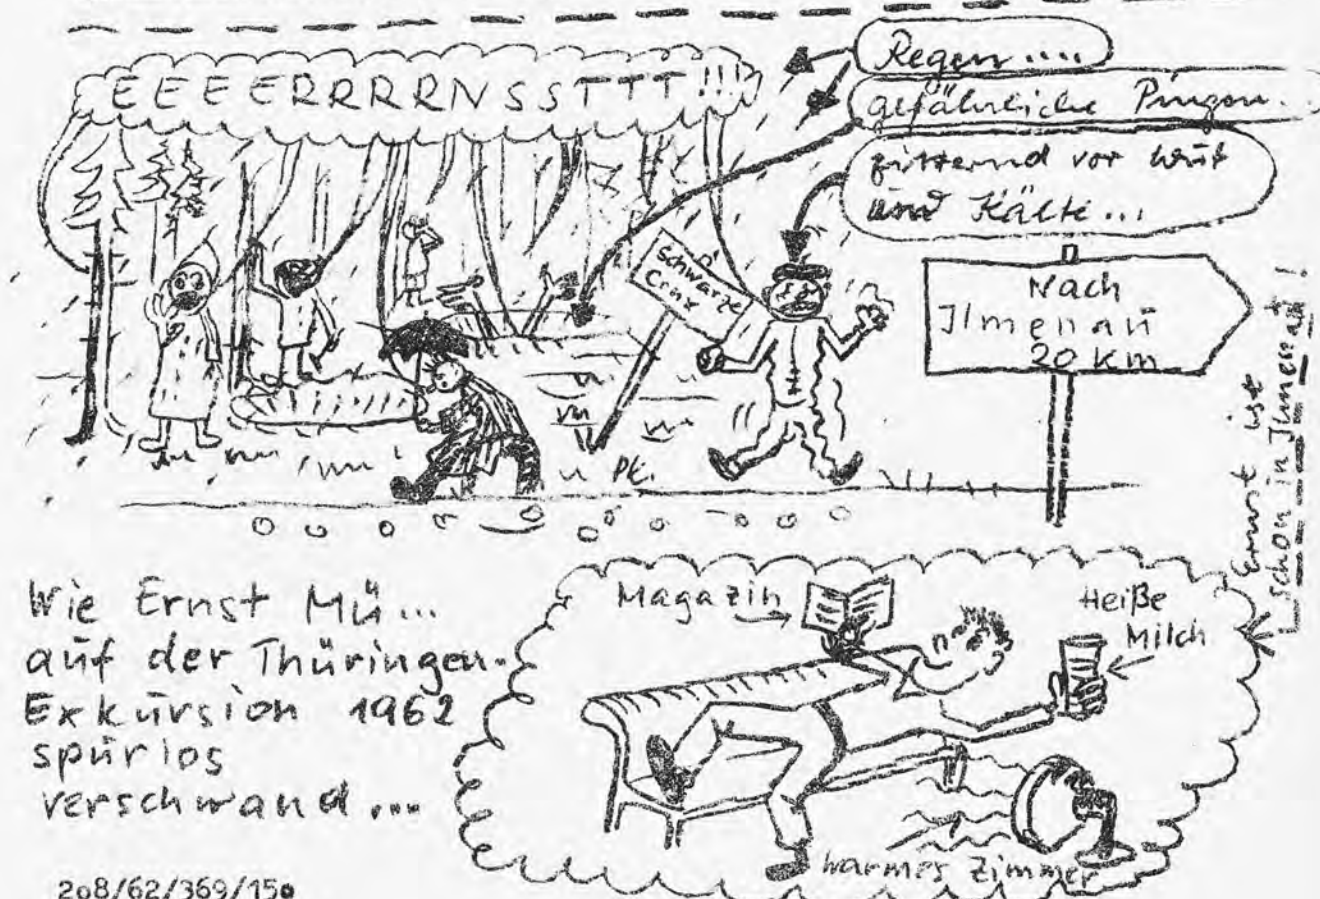 EEEERRRRNSSTTT!!!
Regen....
gefährliche Pingen.
zitternd vor Wut
und Kälte...
Schwarze
Crux
Nach
Ilmenau
20 Km
Pt.
Ernst ist
schon in Ilmenau!
Wie Ernst Mü...
auf der Thüringen-
Exkursion 1962
spurlos
verschwand...
Magazin
Heiße
Milch
warmes Zimmer
208/62/369/150